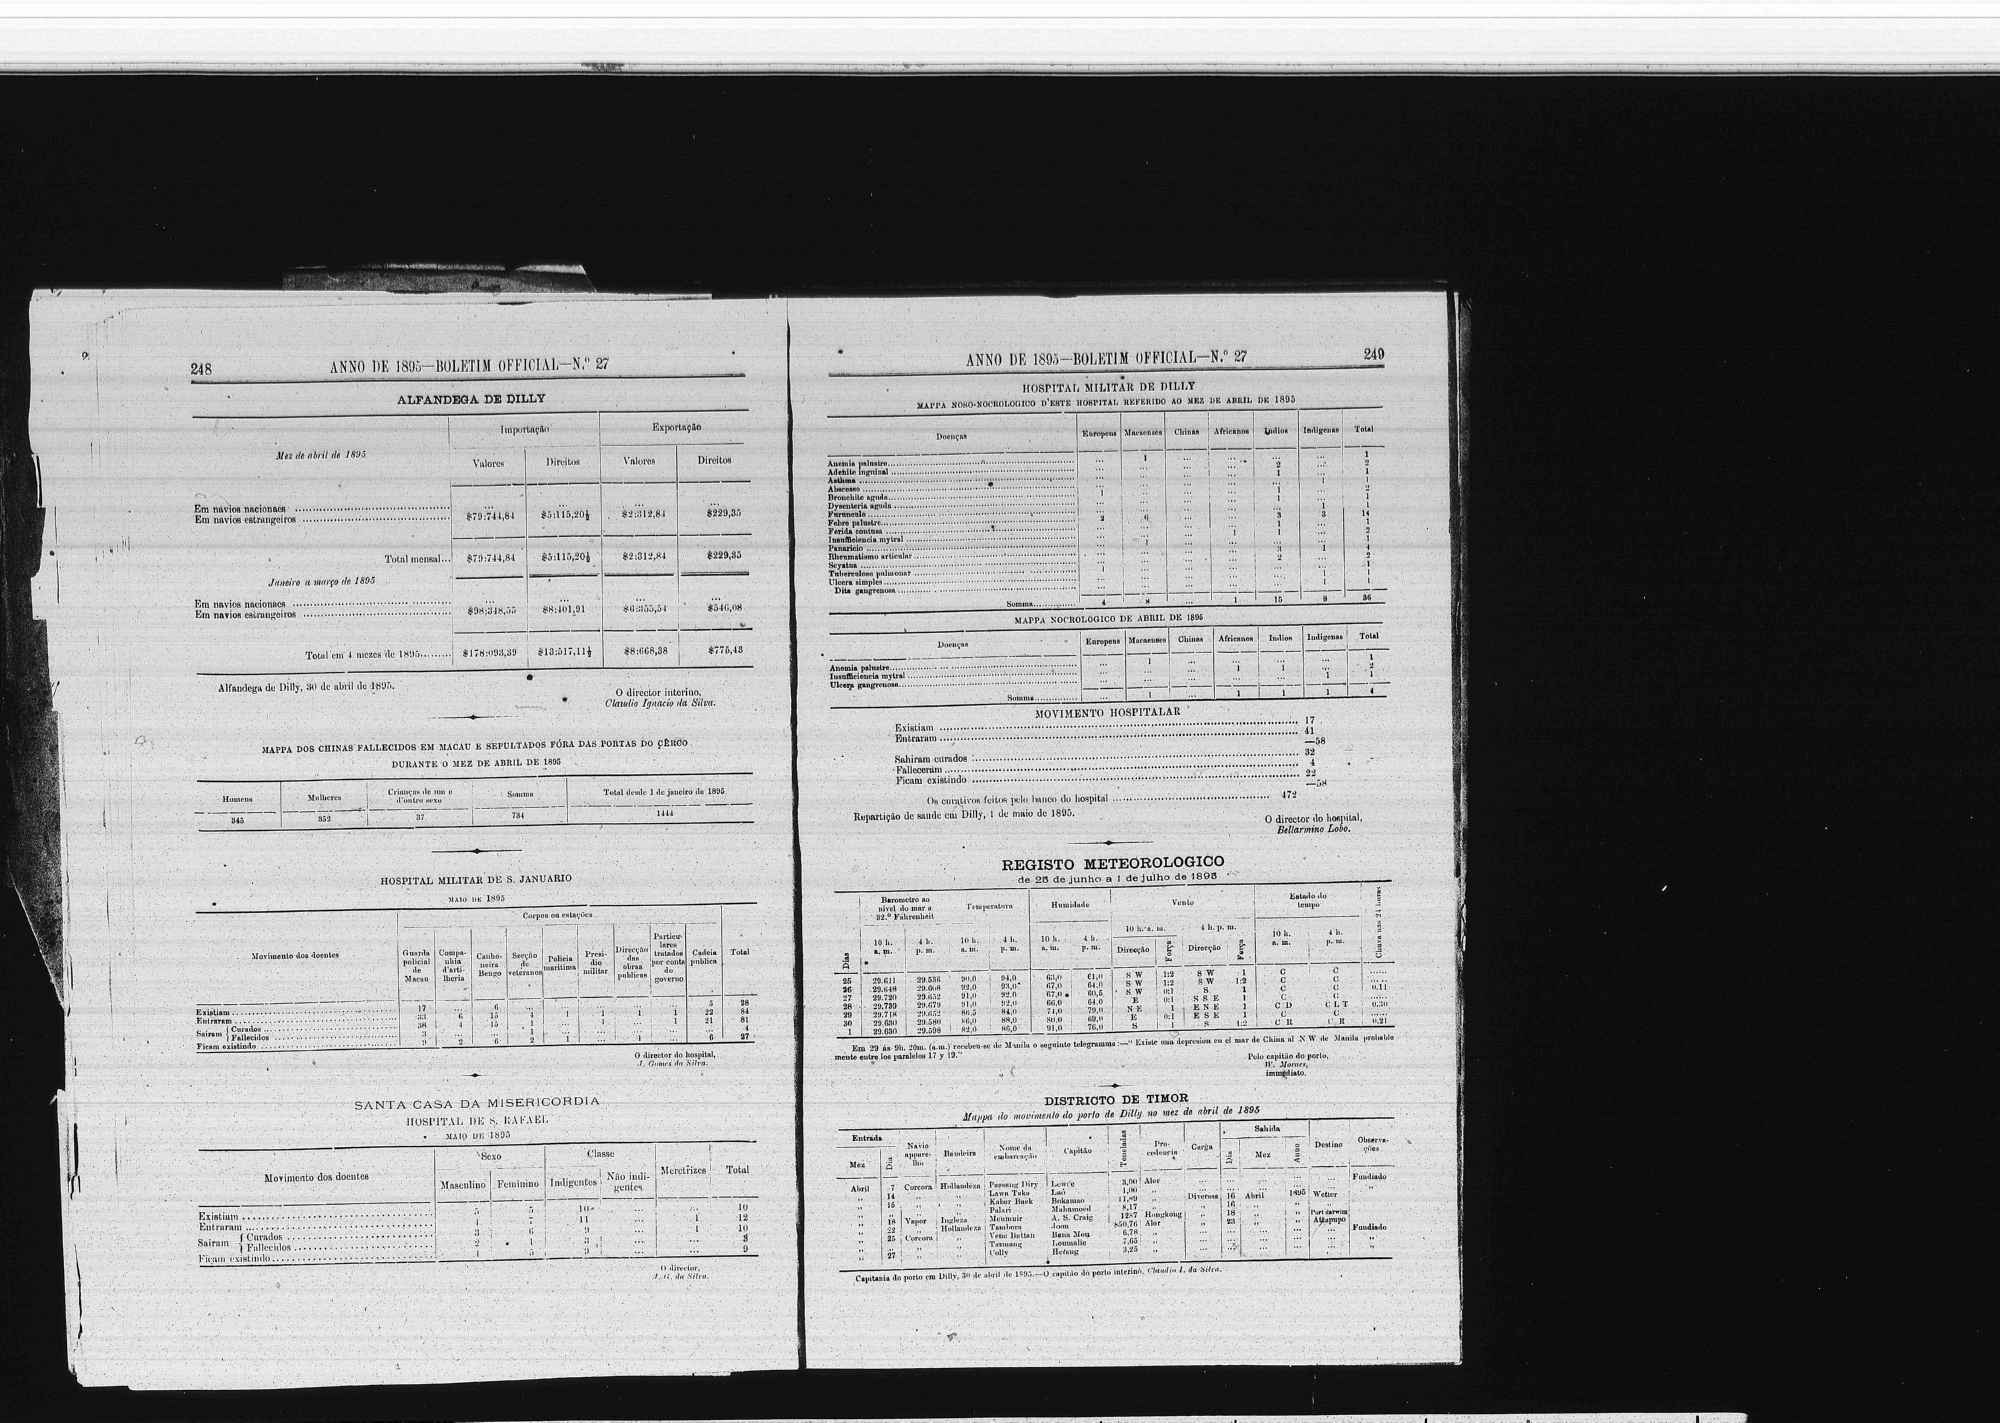 248
ANNO DE 1895—BOLETIM OFFICIAL—N.º 27
ALFANDEGA DE DILLY
Mez de abril de 1895
Importação Exportação
Valores Direitos Valores Direitos
Em navios nacionaes ... ... ... ...
Em navios estrangeiros $79:744,84 $5:115,20½ $2:312,84 $229,35
Total mensal... $79:744,84 $5:115,20½ $2:312,84 $229,35
Janeiro a março de 1895
Em navios nacionaes ... ... ... ...
Em navios estrangeiros $98:348,55 $8:401,91 $6:355,54 $546,08
Total em 4 mezes de 1895 $178:093,39 $13:517,11½ $8:668,38 $775,43
Alfandega de Dilly, 30 de abril de 1895.
O director interino,
Claudio Ignacio da Silva.
MAPPA DOS CHINAS FALLECIDOS EM MACAU E SEPULTADOS FÓRA DAS PORTAS DO CÊRCO
DURANTE O MEZ DE ABRIL DE 1895
Homens Mulheres Crianças de um e d'outro sexo Somma Total desde 1 de janeiro de 1895
345 352 37 734 1444
HOSPITAL MILITAR DE S. JANUARIO
MAIO DE 1895
Movimento dos doentes
Corpos ou estações
Guarda policial de Macau
Companhia d'artilheria
Canhoneira Bengo
Secção de veteranos
Policia maritima
Presidio militar
Direcção das obras publicas
Particulares tratados por conta do governo
Cadeia publica
Total
Existiam 17 ... 6 ... ... ... ... ... 5 28
Entraram 33 6 15 4 1 1 1 1 22 84
Sairam Curados 38 4 15 1 ... 1 ... 1 21 81
Fallecidos 3 ... ... 1 ... ... ... ... ... 4
Ficam existindo 9 2 6 2 1 ... 1 ... 6 27
O director do hospital,
J. Gomes da Silva.
SANTA CASA DA MISERICORDIA
HOSPITAL DE S. RAFAEL
MAIO DE 1895
Movimento dos doentes
Sexo Classe
Masculino Feminino Indigentes Não indigentes Meretrizes Total
Existiam 5 5 10 ... ... 10
Entraram 7 11 ... 1 12
Sairam Curados 3 6 9 ... 1 10
Fallecidos 2 1 3 ... ... 3
Ficam existindo 4 5 9 ... ... 9
O director,
J. G. da Silva.
ANNO DE 1895—BOLETIM OFFICIAL—N.º 27
249
HOSPITAL MILITAR DE DILLY
MAPPA NOSO-NOCROLOGICO D'ESTE HOSPITAL REFERIDO AO MEZ DE ABRIL DE 1895
Doenças Europeus Macaenses Chinas Africanos Indios Indigenas Total
Anemia palustre
Adenite inguinal
Asthma
Abscesso
Bronchite aguda
Dysenteria aguda
Furunculo
Febre palustre
Ferida contusa
Insufficiencia mytral
Panaricio
Rheumatismo articular
Scyatna
Tuberculose pulmonar
Ulcera simples
Dita gangrenosa
Somma 4 8 ... 1 15 8 36
MAPPA NOCROLOGICO DE ABRIL DE 1895
Doenças Europeus Macaenses Chinas Africanos Indios Indigenas Total
Anemia palustre ... 1 ... ... ... ... 1
Insufficiencia mytral ... ... ... 1 1 ... 2
Ulcera gangrenosa ... ... ... ... ... 1 1
Somma 1 ... 1 1 1 4
MOVIMENTO HOSPITALAR
Existiam 17
Entraram 41
—58
Sahiram curados 32
Falleceram 4
Ficam existindo 22
—58
Os curativos feitos pelo banco do hospital 472
Repartição de saude em Dilly, 1 de maio de 1895.
O director do hospital,
Bellarmino Lobo.
REGISTO METEOROLOGICO
de 25 de junho a 1 de julho de 1895
Dias
Barometro ao nivel do mar a 32.º Fahrenheit
Temperatura
Humidade
Vento
Estado do tempo
Chuva nas 24 horas
10 h. a. m. 4 h. p. m. 10 h. a. m. 4 h. p. m. 10 h. a. m. 4 h. p. m. 10 h. a. m. 4 h. p. m. 10 h. a. m. 4 h. p. m.
Direcção Força Direcção Força
25 29.611 29.536 90,0 94,0 63,0 61,0 S W 1:2 S W 1 C C ......
26 29.648 29.608 92,0 93,0 67,0 64,0 S W 1:2 S W 1:2 C C ......
27 29.720 29.652 91,0 92,0 67,0 60,5 S W 0:1 S 1 C C 0.11
28 29.739 29.679 91,0 92,0 66,0 64,0 E 0:1 S S E 1 C C ......
29 29.718 29.652 86,5 84,0 74,0 79,0 N E 1 E N E 1 C D C L T 0.30
30 29.630 29.580 86,0 88,0 80,0 69,0 E 0:1 E S E 1 C C ......
1 29.630 29.598 82,0 86,0 91,0 76,0 S 1 S 1:2 C R C R 0.21
Em 29 ás 9h. 20m. (a.m.) recebeu-se de Manila o seguinte telegramma:—" Existe una depresion en el mar de China al N W de Manila probable
mente entre los paralelos 17 y 19."
Pelo capitão do porto,
W. Moraes,
immediato.
DISTRICTO DE TIMOR
Mappa do movimento do porto de Dilly no mez de abril de 1895
Entrada
Mez Dia
Navio apparelho
Bandeira
Nome da embarcação
Capitão
Toneladas
Procedencia
Carga
Sahida
Dia Mez Anno
Destino
Observações
Abril 7 Corcora Hollandeza Parasang Diry 3,00 Alor ... ... ... ... ... Fundiado
,, 14 ,, ,, Lawa Tako Lao 1,00 ,, ... ... ... ... ... ,,
,, 15 ,, ,, Kabar Baek Bokamao 11,89 ,, Diversos 16 Abril 1895 Wetter
,, ,, ,, ,, Palari Mahamoed 8,17 ,, ,, 16 ,, ,, ,,
,, 18 Vapor Ingleza Menmuir A. S. Craig 1287 Hongkong ,, 18 ,, ,, Port darwin
,, 22 ,, Hollandeza Tambora Joon 850,76 Alor ,, 23 ,, ,, Attapupo
,, 25 Corcora ,, Vene Buttan Bena Meu 6,78 ,, ... ... ... ... ... Fundiado
,, ,, ,, ,, Tasmang Loumalie 7,65 ,, ... ... ... ... ... ,,
,, 27 ,, ,, Colly 3,25 ,, ... ... ... ... ... ,,
Capitania do porto em Dilly, 30 de abril de 1895.—O capitão do porto interino, Claudio I. da Silva.